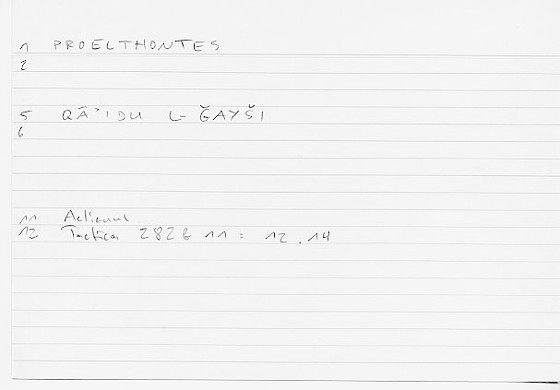 1 PROELTHONTES
2
5 QĀʾIDU L-ǦAYŠI
6
11 Aelianus
12 Tactica 282 11 = 12.14